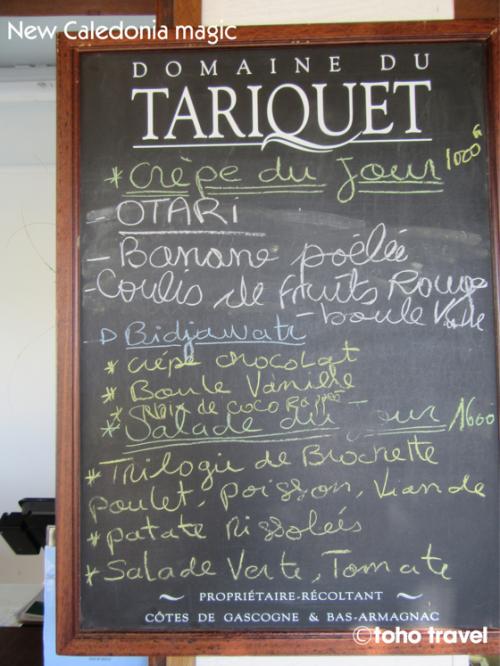 New Caledonia magic
DOMAINE DU
TARIQUET
* Crêpe du jour 1000 F
- OTARI
- Banane poêlée
- Coulis de fruits Rouge
- boule Vanille
Bidjawati
* crêpe chocolat
* Boule Vanille
* Noix de coco Rappée
* Salade du jour 1600
* Trilogie de Brochette
poulet, poisson, viande
* patate Rissolées
* Salade Verte, Tomate
~ PROPRIÉTAIRE-RÉCOLTANT ~
CÔTES DE GASCOGNE & BAS-ARMAGNAC
©toho travel